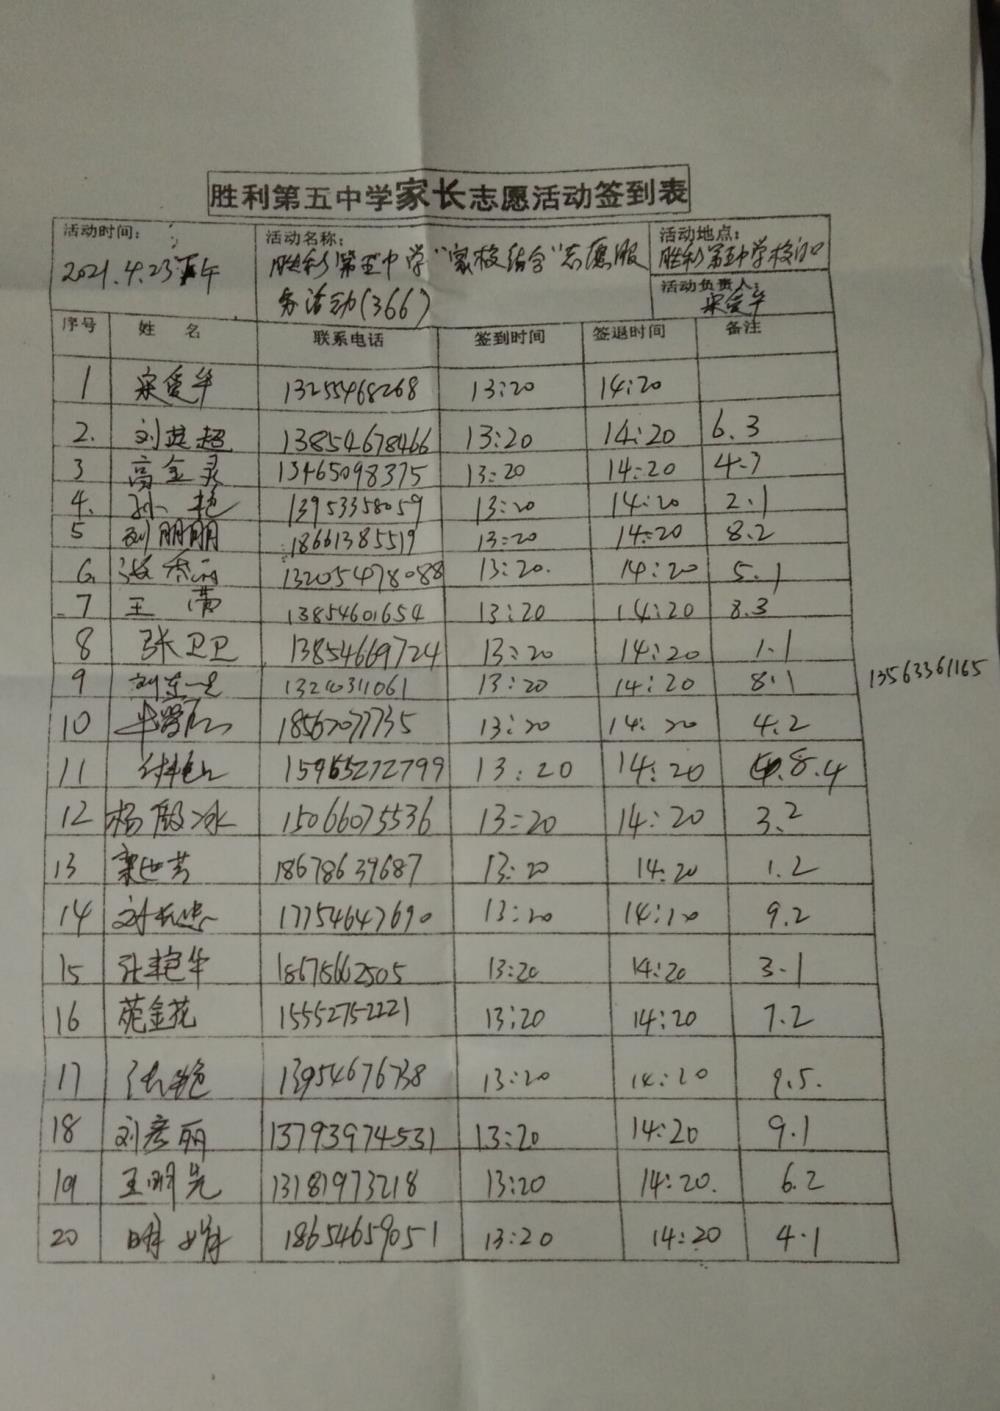 胜利第五中学家长志愿活动签到表
活动时间: 2021.4.23下午
活动名称: 胜利第五中学“家校结合”志愿服
务活动(366)
活动地点: 胜利第五中学校门口
活动负责人: 宋爱华
序号 姓名 联系电话 签到时间 签退时间 备注
1 宋爱华 13255468268 13:20 14:20
2. 刘英超 13854678466 13:20 14:20 6.3
3 高金灵 13465098375 13:20 14:20 4.3
4. 孙艳 13953358059 13:20 14:20 2.1
5 刘朋朋 18661385519 13:20 14:20 8.2
6 13205478088 13:20. 14:20 5.1
7 王 13854601654 13:20 14:20 8.3
8 张卫卫 13854669724 13:20 14:20 1.1
9 13210311061 13:20 14:20 8.1 13563361165
10 18562077735 13:20 14:20 4.2
11 15965272799 13:20 14:20 8.4
12 杨殿冰 15066075536 13:20 14:20 3.2
13 18678639687 13:20 14:20 1.2
14 17754647690 13:20 14:20 9.2
15 张艳华 18675662505 13:20 14:20 3.1
16 苑金花 15552752221 13:20 14:20 7.2
17 张艳 13954676738 13:20 14:20 9.5.
18 刘彦丽 13793974531 13:20 14:20 9.1
19 王明先 13181973218 13:20 14:20. 6.2
20 明娟 18654659051 13:20 14:20 4.1